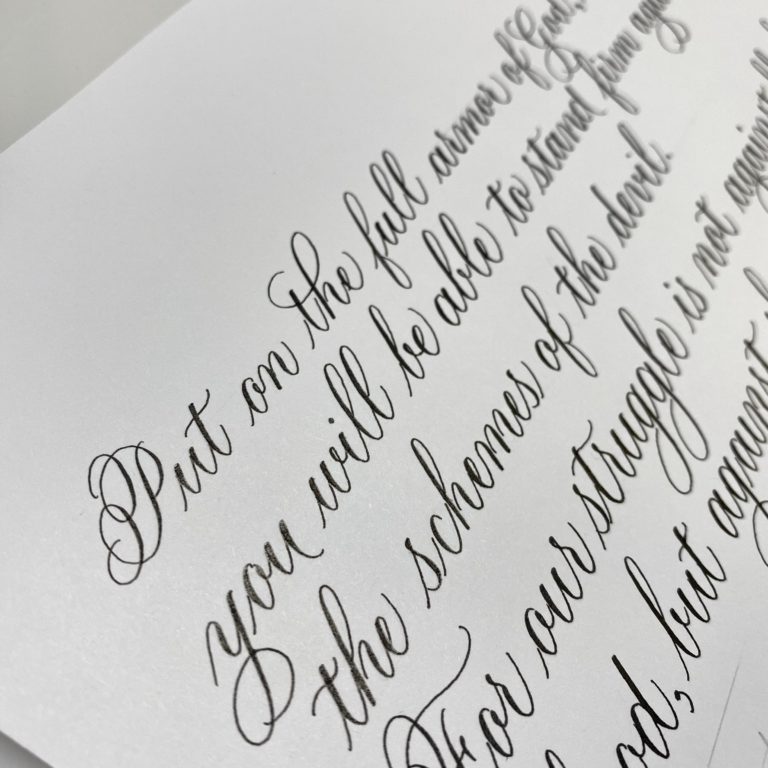 Put on the full armor of God,
you will be able to stand firm
the schemes of the devil.
For our struggle is not against
but against